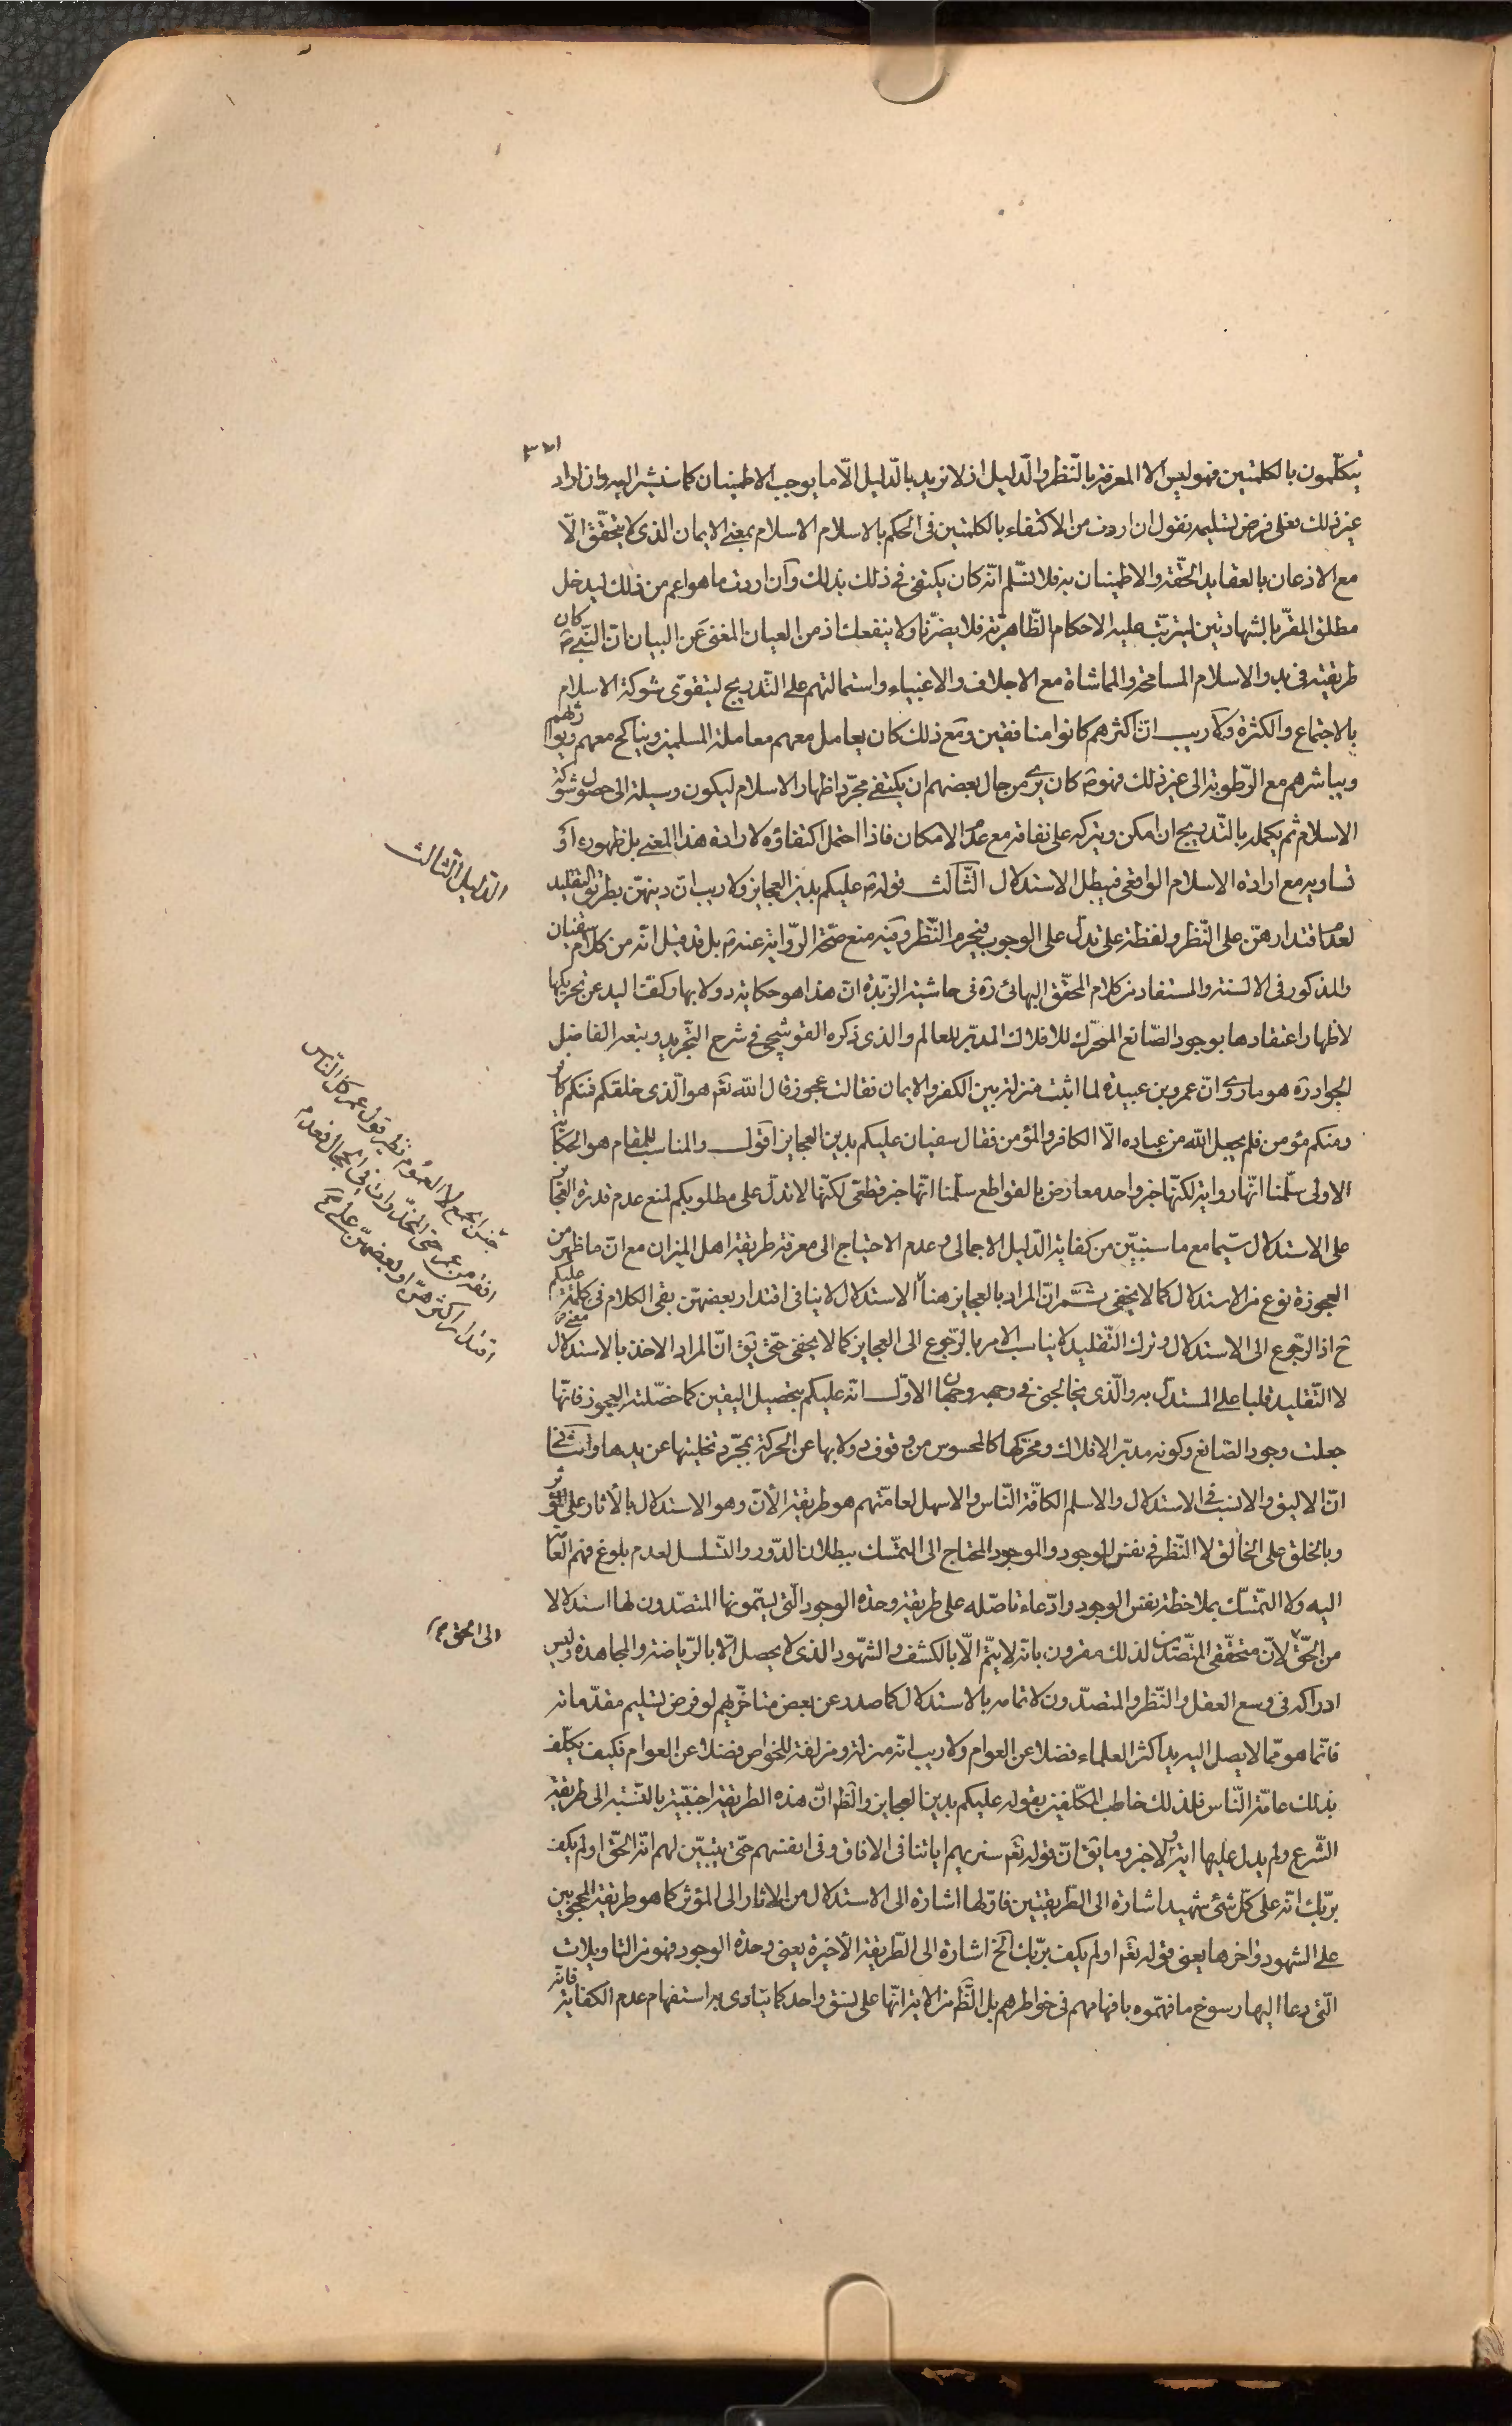 يتكلّمون بالكلمتين فهو ليس الا المعرفة بالنّظر والدّليل اذ لا نريد بالدّليل الّا ما يوجب الاطمينان كما سنشير اليه وان اراد
غير ذلك فعلى فرض تسليمه نقول ان اردت من الاكتفاء بالكلمتين في الحكم بالاسلام الاسلام بمعنى الايمان الذى لا يتحقّق الّا
مع الاذعان بالعقايد الحقّة والاطمينان به فلا نسّلم انّه كان يكتفى في ذلك بذلك وان اردت ما هو اعم من ذلك ليدخل
مطلق المقرّ بالشهادتين ليترتّب عليه الاحكام الظّاهريّة فلا يضرّنا ولا ينفعك اذ من العيان المغنى عن البيان انّ النّبىّ ص كان
طريقته في بدو الاسلام المسامحة والمماشاة مع الاجلاف والاغنياء واستمالتهم على التّدريج ليتقوّى شوكة الاسلام
بالاجتماع والكثرة ولا ريب انّ اكثرهم كانوا منافقين ومع ذلك كان يعامل معهم معاملة المسلمين ويناكح معهم ويوارثهم
ويباشرهم مع الرّطوبة الى غير ذلك فهو ص كان يرى من حال بعضهم ان يكتفى مجرّد اظهار الاسلام ليكون وسيلة الى حصول شوكة
الاسلام ثم يكمله بالتّدريج ان امكن ويتركه على نفاقه مع عدم الامكان فاذا احتمل اكتفاؤه لارادة هذا المعنى بل ظهوره او
تساويه مع ارادة الاسلام الواقعى فيبطل الاستدلال الثّالث قوله ص عليكم بدين العجايز ولا ريب انّ دينهنّ بطريق التقليد
لعدم اقتدارهنّ على النّظر ولفظة على تدلّ على الوجوب فيحرم النّظر وفيه منع صحّة الرّواية عنه ص بل قد قيل انّه من كلام سفيان
والمذكور في الالسنة والمستفاد من كلام المحقّق البهائى ره في حاشية الزّبدة انّ هذا هو حكاية دولابها وكفّ اليد عن تحريكها
لاظهار اعتقادها بوجود الصّانع المحرّك للافلاك المدبّر للعالم والذى ذكره القوشجى في شرح التّجريد وتبعه الفاضل
الجواد ره هو ما روى انّ عمرو بن عبيدة لما اثبت منزلة بين الكفر والايمان فقالت عجوز قال الله تعم هو الّذى خلقكم فمنكم كافر
ومنكم مؤمن فلم يجعل الله من عباده الّا الكافر والمؤمن فقال سفيان عليكم بدين العجايز اقول والمناسب للمقام هو الحكاية
الاولى سلّمنا انّها رواية لكنّها خبر واحد معارض بالقواطع سلّمنا انّها خبر قطعى لكنّها لا تدلّ على مطلوبكم لمنع عدم قدرة العجايز
على الاستدلال سيّما مع ما سنبيّن من كفاية الدّليل الاجمالى وعدم الاحتياج الى معرفة طريقة اهل الميزان مع انّ ما ظهر من
العجوزة نوع من الاستدلال كما لا يخفى ثمّ انّ المراد بالعجايز هنا الاستدلال لا ينافى اقتدار بعضهنّ بقى الكلام في كلمة عليكم
ح اذ الرّجوع الى الاستدلال وترك التّقليد لا يناسب الامر بالرّجوع الى العجايز كما لا يخفى حتّى يق انّ المراد الاخذ بالاستدلال
لا التّقليد قلبا على المستدلّ به والّذى يخالجنى في وجهه وجهان الاوّل انّه عليكم بتحصيل اليقين كما حصّلته العجوز فانّها
جعلت وجود الصّانع وكونه مدبّر الافلاك ومحرّكها كالمحسوس من وقوف دولابها عن الحركة بمجرّد تخليتها عن يدها والثّانى
انّ الاليق والانسب في الاستدلال والاسلم لكافّة النّاس والاسهل لعامّتهم هو طريقة الانّ وهو الاستدلال بالأثار على المؤثّر
وبالخلق على الخالق لا النّظر في نفس الوجود والموجود المحتاج الى التمسّك ببطلان الدّور والتّسلسل لعدم بلوغ فهم العامّة
اليه ولا التمسّك بملاحظة نفس الوجود وادّعاء تاصّله على طريقة وحدة الوجود الّتى يسمّونها المتصدّون لها استدلالا
من الحقّ لانّ متحقّقى المتصّدّين لذلك مقرون بانّه لا يتمّ الّا بالكشف والشهود الذى لا يحصل الّا بالرّياضة والمجاهدة وليس
ادراكه في وسع العقل والنّظر والمتصدّون لاتمامه بالاستدلال كما صدر عن بعض متاخّريهم لو فرض تسليم مقدّماته
فانّما هو ممّا لا يصل اليه يد اكثر العلماء فضلا عن العوام ولا ريب انّه منزلة ومزلقة للخواص فضلا عن العوام فكيف يكلّف
بذلك عامّة النّاس فلذلك خاطب المكّلفين بقوله عليكم بدين العجايز والظّ انّ هذه الطريقة اجنبيّة بالنّسبة الى طريقة
الشّرع ولم يدل عليها اية ولا خبر وما يق انّ قوله تعم سنريهم اياتنا فى الافاق وفى انفسهم حتّى يتبيّن لهم انّه الحقّ اولم يكف
بربّك انّه على كلّ شئ شهيد اشارة الى الطّريقتين فاوّلها اشارة الى الاستدلال من الاثار الى المؤثر كما هو طريقة المحجوبين
على الشهود واخرها يعنى قوله تعم اولم يكف بربّك الخ اشارة الى الطّريقة الأخيرة يعنى وحدة الوجود فهو من التاويلات
الّتى دعا اليها رسوخ ما فهّموه بافهامهم في خواطرهم بل الظّ من الاية انّها على نسق واحد كما ينادى به استفهام عدم الكفاية فانّه
الدّليل الثّالث
جنس الجمع لا العموم نظير قول عمر كلّ النّاس
افقه من عمر حتى المخدّرات في الحجال فعدم
اقتدار اكثرهنّ او بعضهنّ على
الى الحق